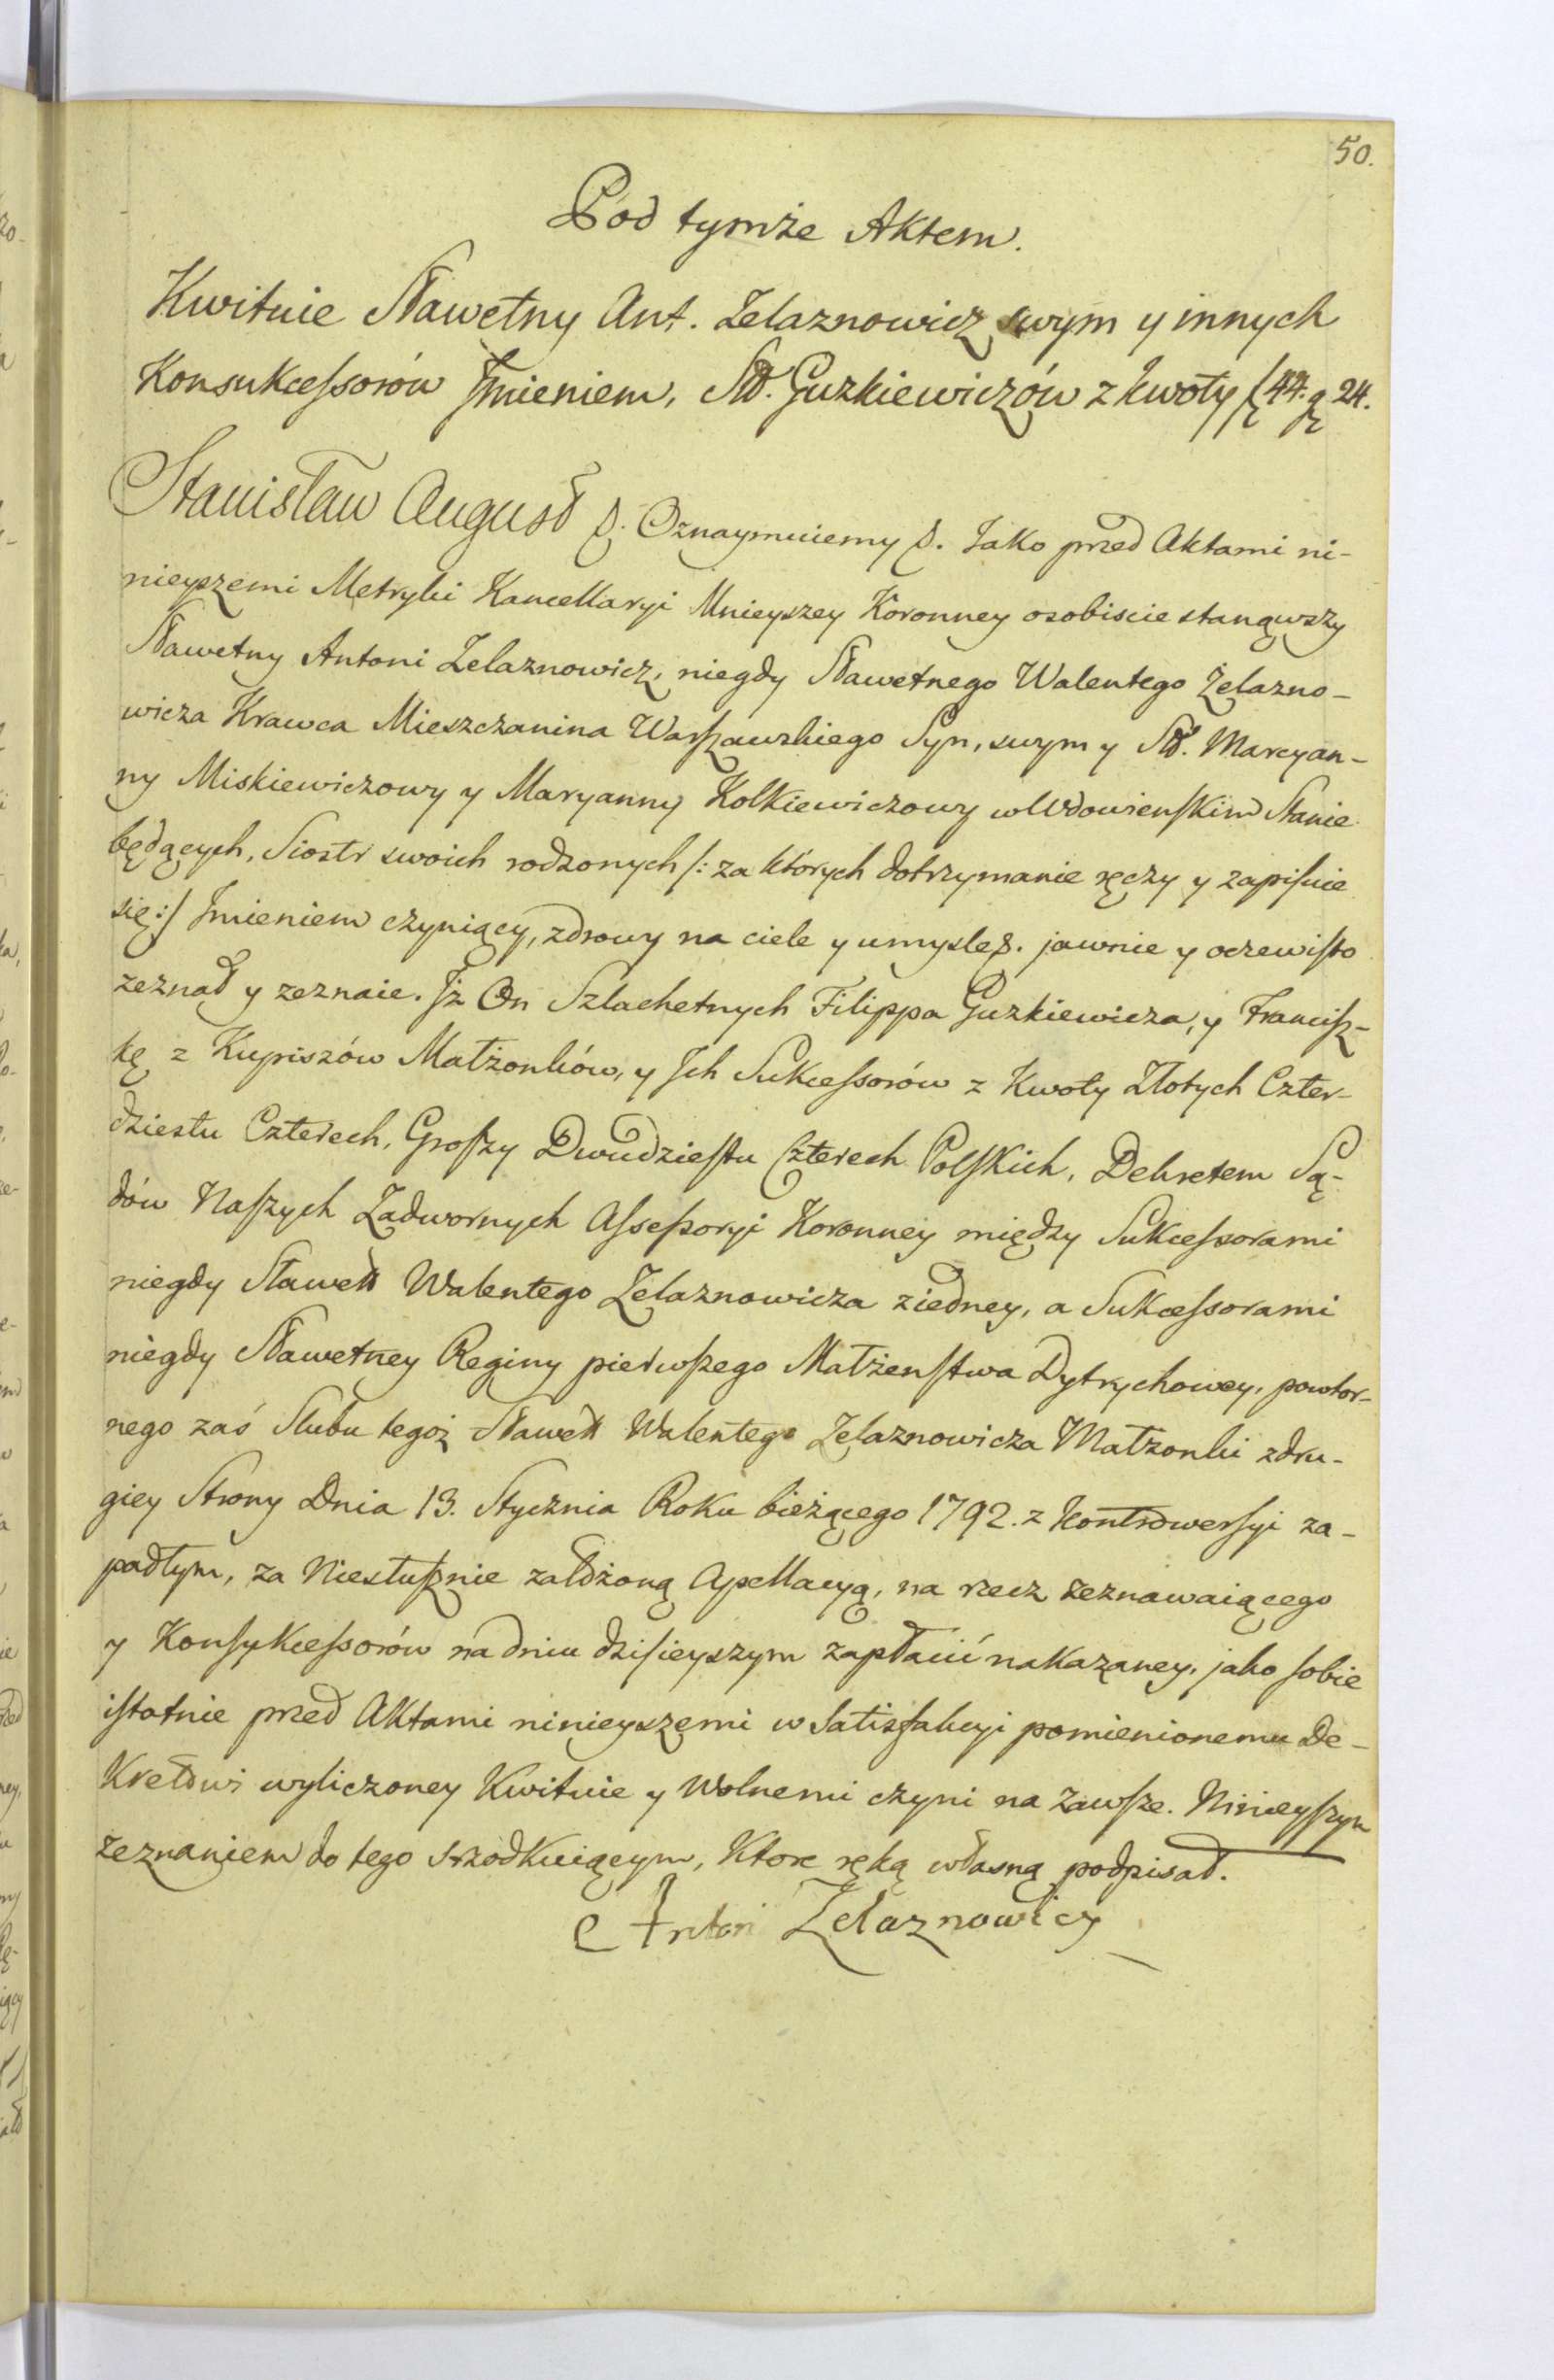 50.
Pod tymże Aktem.
Kwituie Sławetny Ant. Zelaznowicz swym y innych
Konsukcessorów Jmieniem, Sld. Guzkiewiczów z kwoty f 44. g 24.
Stanisław August &. Oznaymuiemy &. Jako przed Aktami ni-
nieyszemi Metryki Kancellaryi Mnieyszey Koronney osobiscie stanąwszy
Sławetny Antoni Zelaznowicz, niegdy Sławetnego Walentego Żelazno-
wicza Krawca Mieszczanina Warszawskiego Syn, swym y Sld. Marcyan-
ny Miskiewiczowy y Maryanny Kolkiewiczowy w Wdowienskim Stanie
będących, Siostr swoich rodzonych /: za których dotrzymanie ręczy y zapisuie
się :/ Jmieniem czyniący, zdrowy na ciele y umysle &. jawnie y oczewisto
zeznał y zeznaie. Jż On Szlachetnych Filippa Guzkiewicza, y Francisz-
kę z Kupiszów Małżonków, y Jch Sukcessorów z Kwoty Złotych Czter-
dziestu Czterech, Groszy Dwudziestu Czterech Polskich, Dekretem Są-
dów Naszych Zadwornych Assessoryi Koronney między Sukcessorami
niegdy Sławett Walentego Zelaznowicza ziedney, a Sukcessorami
niegdy Sławetney Reginy pierwszego Małżenstwa Dytrychowey, powtor-
nego zaś Slubu tegoż Sławett Walentego Zelaznowicza Małzonki zdru-
giey Strony Dnia 13. Stycznia Roku bieżącego 1792. z Kontrowersyi za-
padłym, za Niesłusznie założoną Apellacyą, na rzecz zeznawaiącego
y Konsukcessorów na dniu dzisieyszym zapłacić nakazaney, jako sobie
istotnie przed Aktami ninieyszemi w Satisfakcyi pomienionemu De-
Kretowi wyliczoney Kwituie y Wolnemi czyni na Zawsze. Ninieyszym
zeznaniem do tego szrodkuiącym, Ktore ręką własną podpisał.
Antoni Zelaznowicz